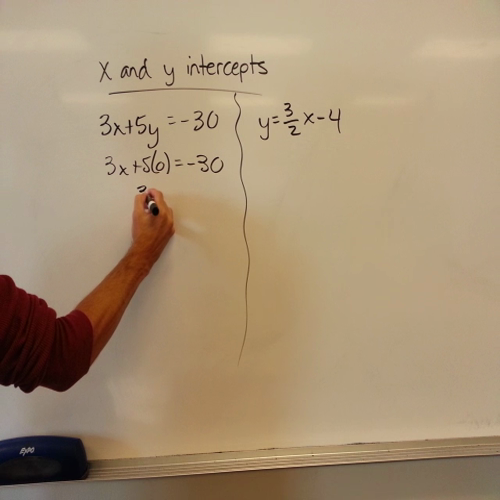 x and y intercepts
3x+5y=-30
3x+5(0)=-30
y=3/2x-4
EXPO